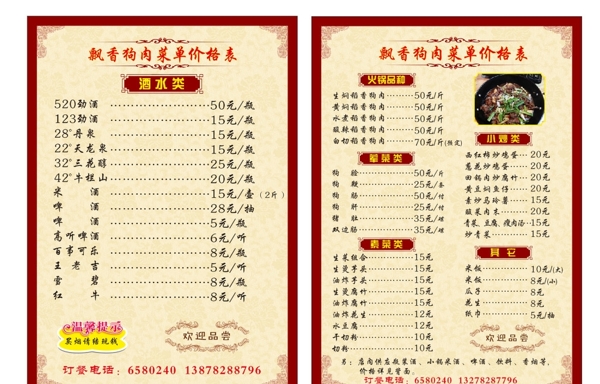 飘香狗肉菜单价格表
酒水类
520劲酒 50元/瓶
123劲酒 15元/瓶
28°丹泉 15元/瓶
22°天龙泉 15元/瓶
32°三花醇 25元/瓶
42°牛栏山 20元/瓶
米酒 15元/壶(2斤)
啤酒 28元/抽
啤酒 5元/瓶
高听啤酒 6元/听
百事可乐 8元/瓶
王老吉 5元/听
雪碧 8元/瓶
红牛 8元/听
温馨提示
买烟请结现钱
欢迎品尝
订餐电话：6580240 13878288796
飘香狗肉菜单价格表
火锅品种
生焖稻香狗肉 50元/斤
黄焖稻香狗肉 50元/斤
水煮稻香狗肉 50元/斤
酸辣稻香狗肉 50元/斤
白切稻香狗肉 70元/斤(预定)
荤菜类
狗 50元/斤
狗鞭 25元/条
狗肠 50元/付
狗肝 25元/付
猪肚 35元/碟
双边肠 35元/碟
素菜类
生菜组合 15元
生烫芋头 15元
油炸芋头 15元
生烫腐竹 15元
油炸腐竹 15元
油炸花生 12元
水豆腐 12元
干切粉 10元
切粉 10元
小炒类
西红柿炒鸡蛋 20元
葱花炒鸡蛋 20元
田锅肉炒腐竹 20元
黄豆焖鱼仔 20元
素炒马玲薯 15元
酸菜肉末 20元
青菜、豆腐、瘦肉汤 15元
炒青菜 15元
其它
米饭 10元/(大)
米饭 8元/(小)
瓜子 8元
花生 8元
纸巾 5元/抽
欢迎品尝
另：店内供应瓶装酒、小锅米酒、啤酒、饮料、香烟等，
价格详见背面。
订餐电话：6580240 13278288796